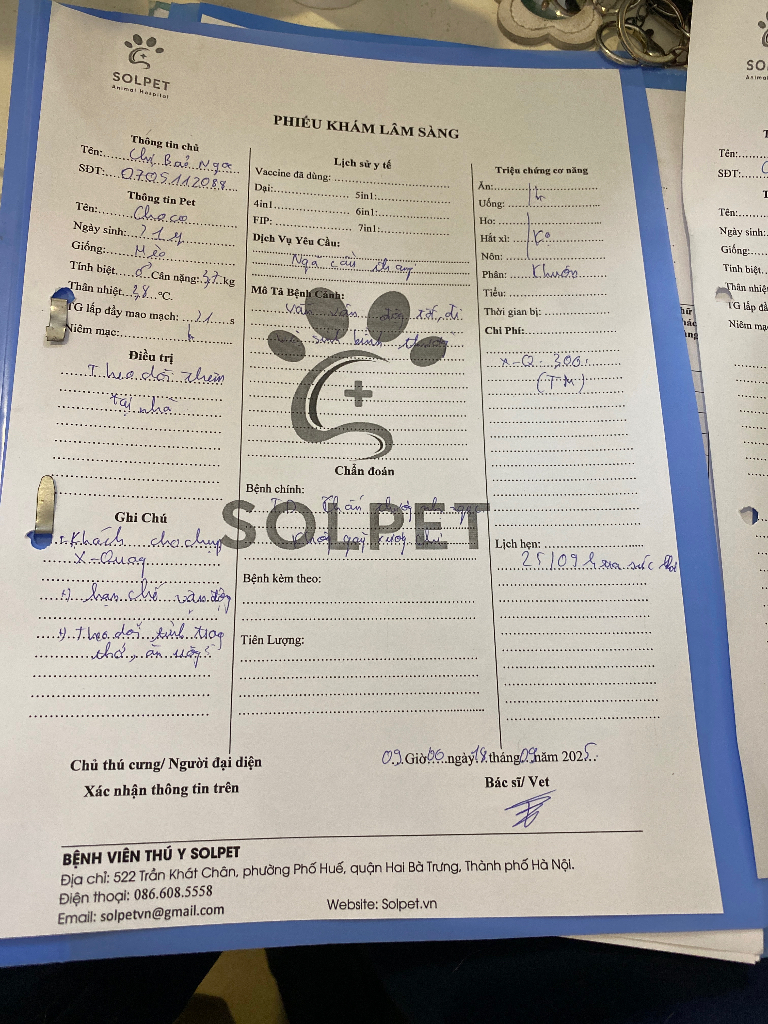 SOLPET
Animal Hospital
PHIẾU KHÁM LÂM SÀNG
Thông tin chủ
Tên: Chị Bảo Ngọc
SĐT: 0705112088
Thông tin Pet
Tên: Chaco
Ngày sinh: 21y
Giống: Mèo
Tính biệt ♂ Cân nặng: 3,7 kg
Thân nhiệt 38 °C.
TG lấp đầy mao mạch: 21 s
Niêm mạc: h
Điều trị
Theo dõi thêm
tại nhà
Ghi Chú
Khách cho chụp
X-Quag
+) hạn chế vận động
+) Theo dõi tình trag
thở, ăn uống
Lịch sử y tế
Vaccine đã dùng:
Dại: 5in1:
4in1 6in1:
FIP: 7in1:
Dịch Vụ Yêu Cầu:
Ngã cầu thag
Mô Tả Bệnh Cảnh:
Vẫn vận động tốt, đi
vệ sinh bình thường
Chẩn đoán
Bệnh chính:
TD
Bệnh kèm theo:
Tiên Lượng:
Triệu chứng cơ năng
Ăn:
Uống: h
Ho:
Hắt xì: Ko
Nôn:
Phân: Khuôn
Tiểu:
Thời gian bị:
Chi Phí:
X-Q: 300.
(TM)
Lịch hẹn:
25/09
SOLPET
Chủ thú cưng/ Người đại diện
Xác nhận thông tin trên
09 Giờ 06 ngày 18 tháng 09 năm 2025
Bác sĩ/ Vet
BỆNH VIỆN THÚ Y SOLPET
Địa chỉ: 522 Trần Khát Chân, phường Phố Huế, quận Hai Bà Trưng, Thành phố Hà Nội.
Điện thoại: 086.608.5558
Email: solpetvn@gmail.com
Website: Solpet.vn
Tên:
SĐT:
Tên:
Ngày sinh:
Giống:
Tính biệt
Thân nhiệt
TG lấp đầy
Niêm mạc